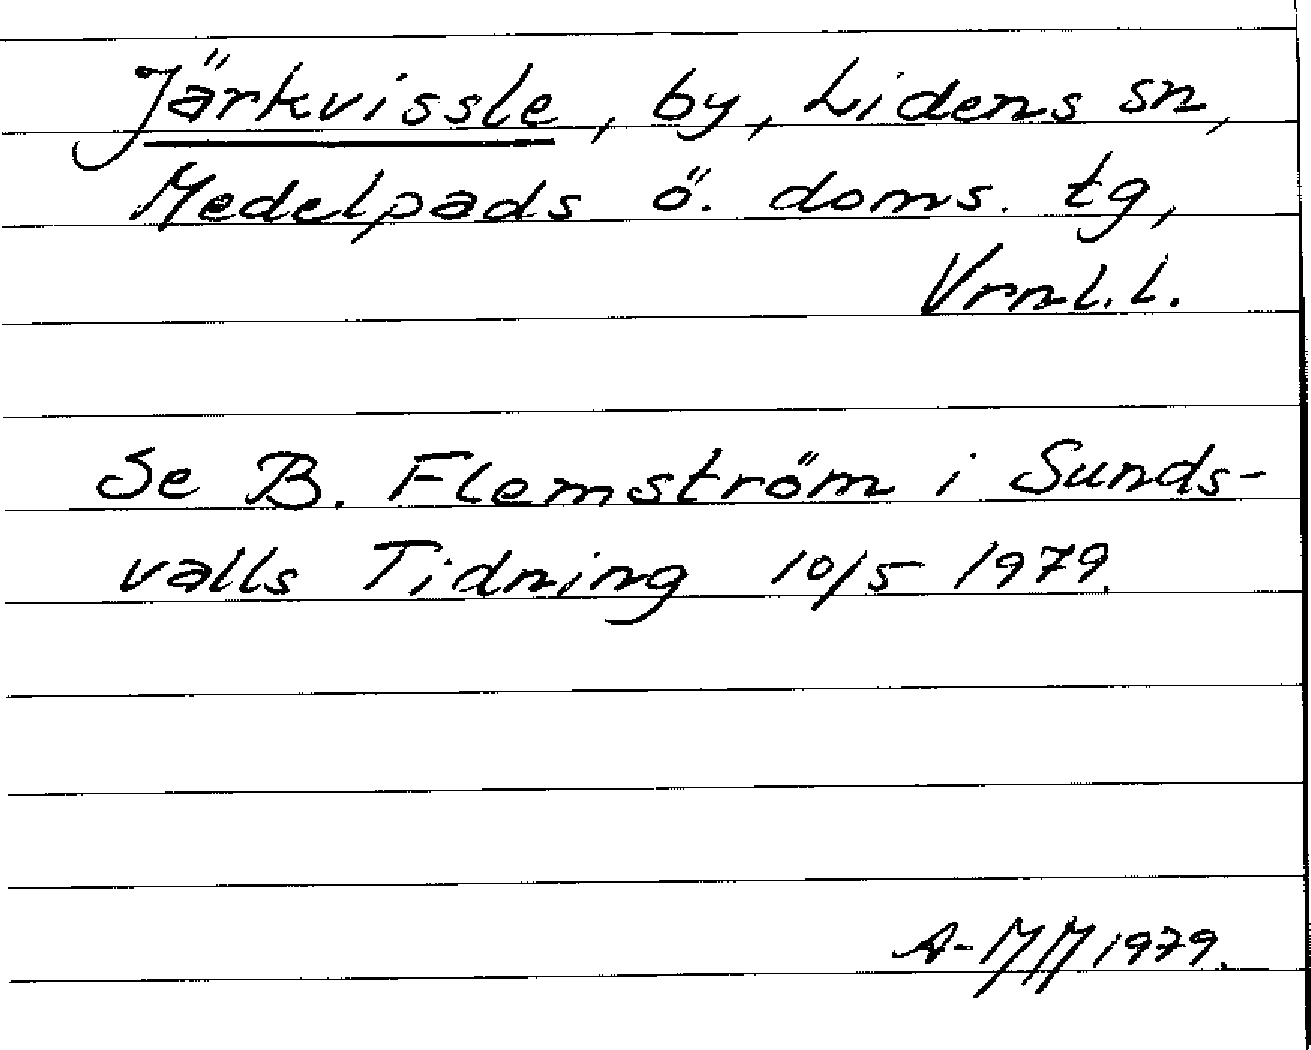 Järkvissle, by, Lidens sn,
Medelpads ö. doms. tg,
Vrnl. l.
Se B. Flemström i Sunds-
valls Tidning 10/5 1979.
A-MM 1979.